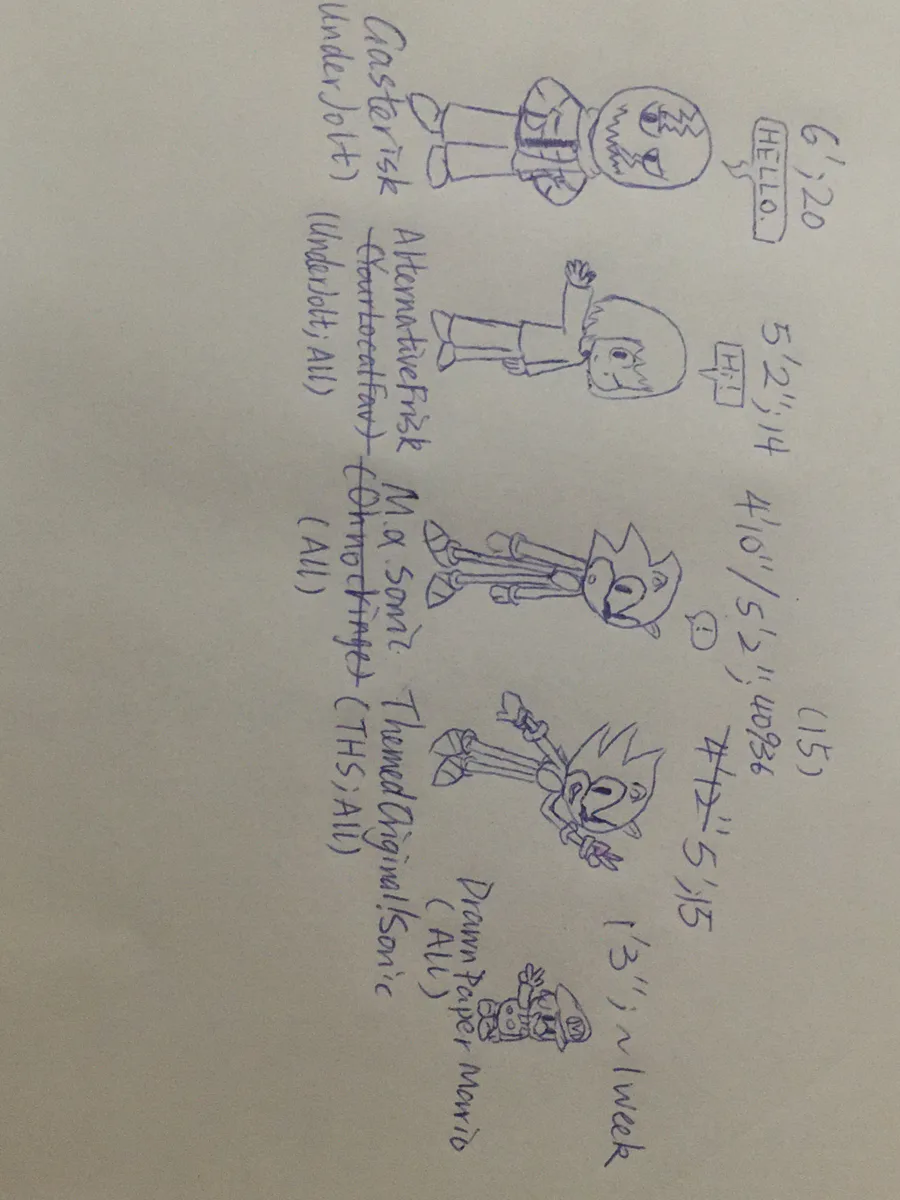 6';20
HELLO.
Gasterisk
UnderJolt)
5'2";14
Hi!
AlternativeFrisk
(YourLocalFav)
(UnderJolt;All)
(15)
4'10"/5'2";40936
!
M.a.Sonic
(Ohnockinge)
(All)
4'12" 5';15
ThemedOriginal!Sonic
(THS;All)
1'3";~1week
M
DrawnPaperMario
(All)